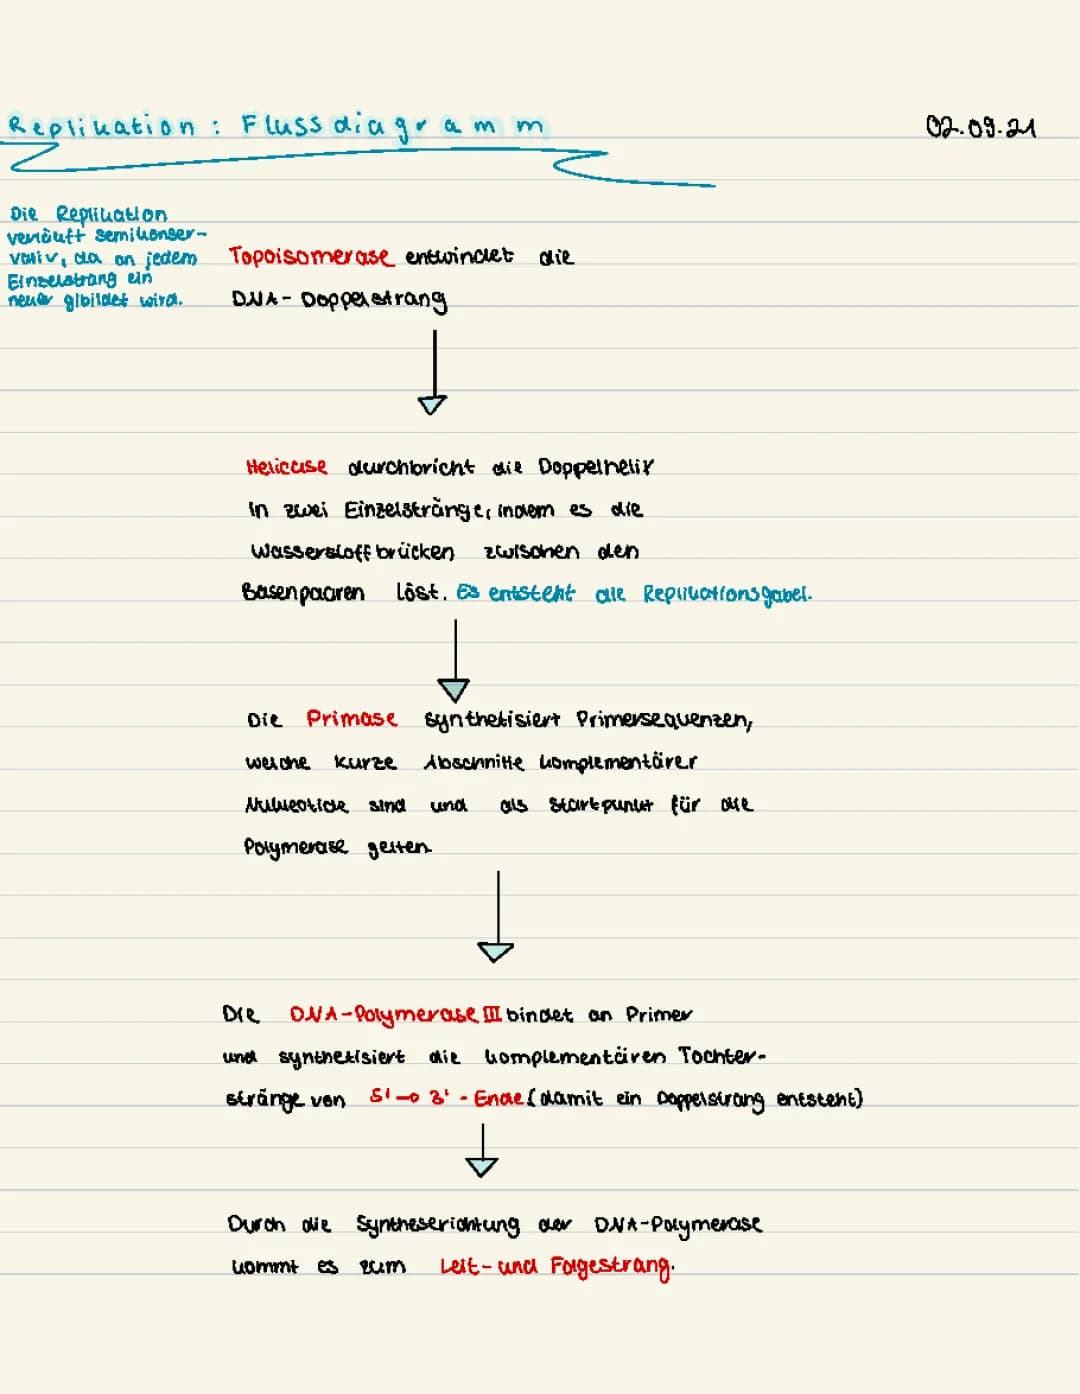 Replikation: Flussdiagramm
02.09.21
Die Replikation
verläuft semikonser-
vativ, da an jedem
Einzelstrang ein
neuer gibildet wird.
Topoisomerase entwindet die
DNA-Doppelstrang
Helicase durchbricht die Doppelhelix
in zwei Einzelstränge, indem es die
Wasserstoffbrücken zwischen den
Basenpaaren löst. Es entsteht die Replikationsgabel.
Die Primase synthetisiert Primersequenzen,
welche kurze Abschnitte komplementärer
Nukleotide sind und als Startpunkt für die
Polymerase gelten.
Die DNA-Polymerase III bindet an Primer
und synthetisiert die komplementären Tochter-
stränge von 5'→3'-Ende (damit ein Doppelstrang entsteht)
Durch die Syntheserichtung der DNA-Polymerase
kommt es zum Leit- und Folgestrang.